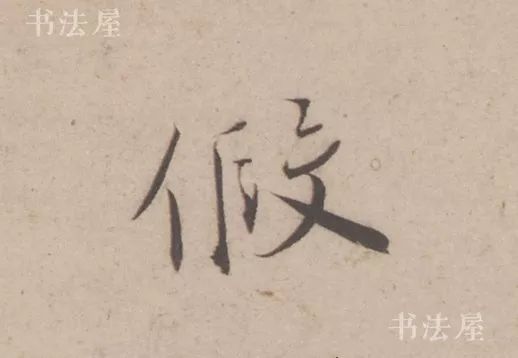 书法屋
假
书法屋